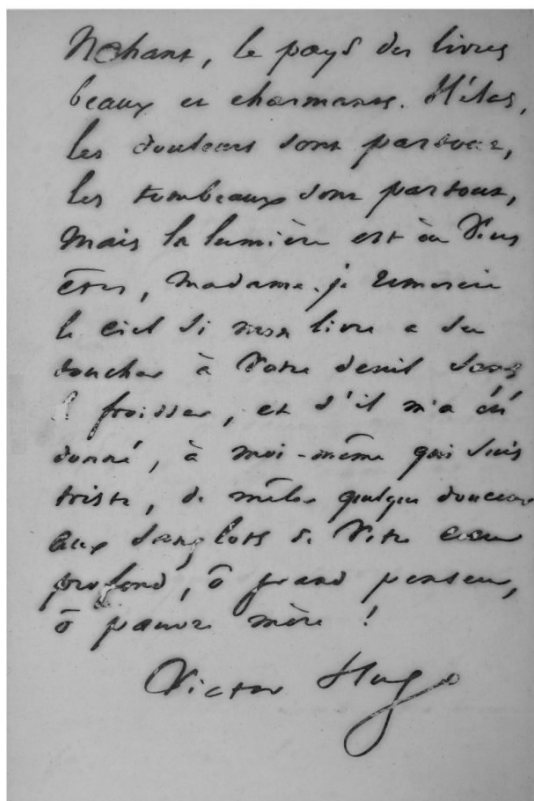 Nohant, le pays des livres
beaux et charmants. Hélas,
les douleurs sont partout,
les tombeaux sont partout,
mais la lumière est où Vous
êtes, Madame. je remercie
le ciel si mon livre a su
toucher à Votre deuil sans
froisser, et s'il m'a été
donné, à moi-même qui suis
triste, de mêler quelque douceur
aux sanglots de Votre cœur
profond, ô grand penseur,
ô pauvre mère !
Victor Hugo